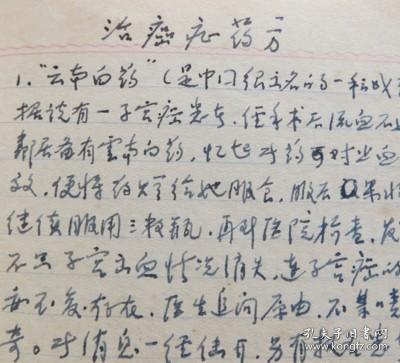 治癌症药方
1. "云南白药"（是中国很出名的一种成
据说有一子宫癌患者，经手术后流血不止
邻居备有雲南白药，忆起此药可对止血
效，便将药分给她服食，服后果
继续服用三数瓶，再到医院检查，发
不只子宫出血情况消失，连子宫癌的
亦不复存在，医生追问原由，不禁啧
奇。此消息一经传开，另有
孔夫子旧书网